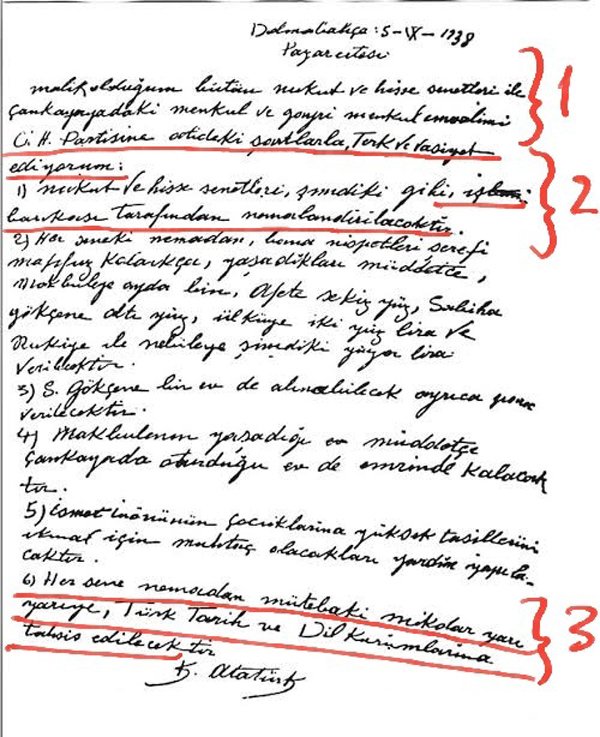 Dolmabahçe: 5-IX-1938
Pazarertesi
malik olduğum bütün nukut ve hisse senetleri ile
Çankayadaki menkul ve gayri menkul emvalimi
C. H. Partisine atideki şartlarla, Terk ve Vasiyet
ediyorum:
1) nukut ve hisse senetleri, şimdiki gibi, iş
bankası tarafından nemalandırılacaktır.
2) Her seneki nemadan, bana nispetleri şerefi
mahfuz kaldıkça, yaşadıkları müddetçe,
Makbuleye ayda bin, Afete sekiz yüz, Sabiha
gökçene altı yüz, ülküye iki yüz lira ve
Rukiye ile nebileye şimdiki yüzer lira
verilecektir.
3) S. Gökçene bir ev de alınabilecek ayrıca para
verilecektir.
4) Makbulenin yaşadığı müddetçe
Çankayada oturduğu ev de emrinde kalacak
tır.
5) ismet inönünün çocuklarına yüksek tahsillerini
ikmal için muhtaç olacakları yardım yapıla-
caktır.
6) Her sene nemadan mütebaki miktar yarı
yarıya, Türk Tarih ve Dil Kurumlarına
tahsis edilecektir
K. Atatürk
1
2
3